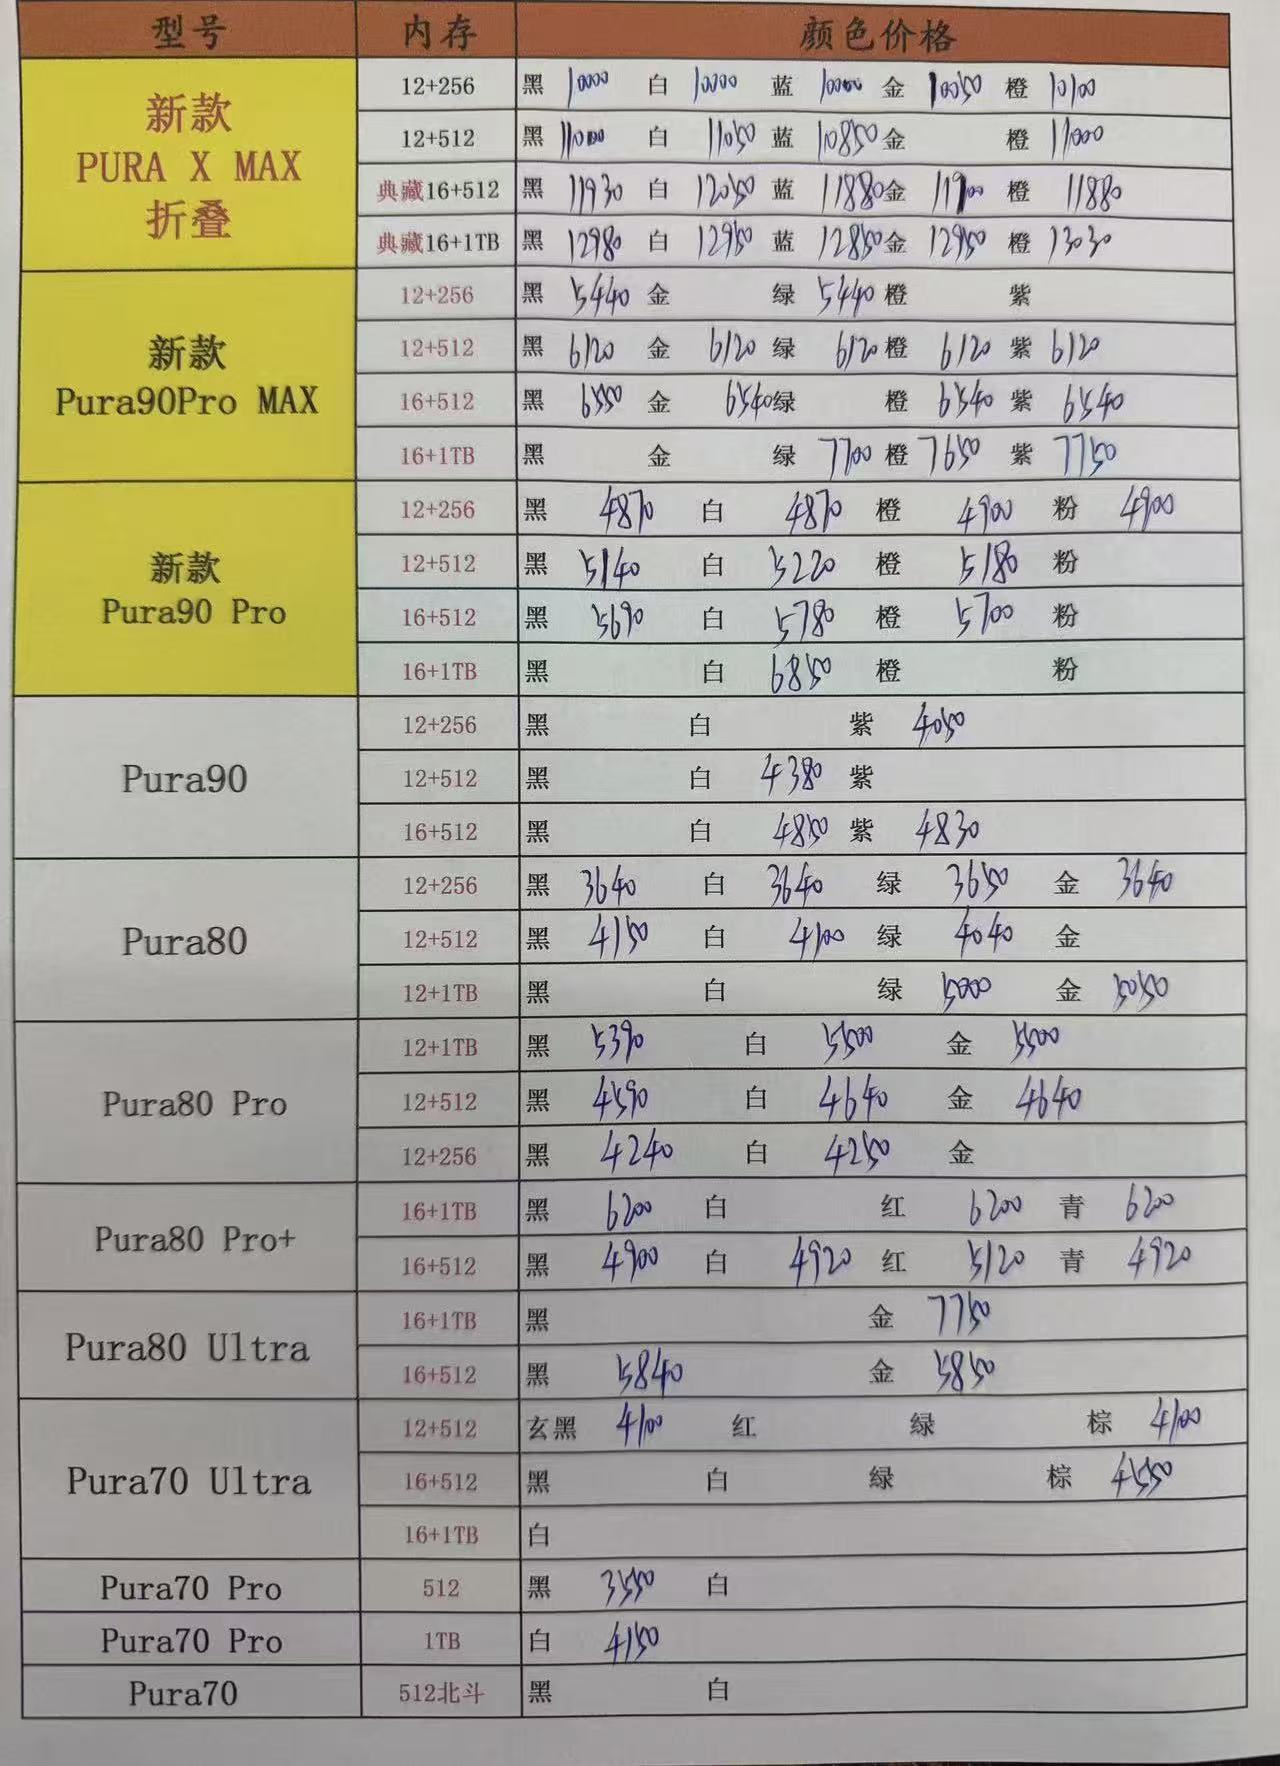 型号 内存 颜色价格
新款
PURA X MAX
折叠
12+256 黑 10000 白 10000 蓝 10000 金 10050 橙 10100
12+512 黑 11000 白 11050 蓝 10850 金 橙 11000
典藏16+512 黑 11930 白 12050 蓝 11880 金 11900 橙 11880
典藏16+1TB 黑 12980 白 12950 蓝 12850 金 12950 橙 13030
新款
Pura90Pro MAX
12+256 黑 5440 金 绿 5440 橙 紫
12+512 黑 6120 金 6120 绿 6120 橙 6120 紫 6120
16+512 黑 6550 金 6540 绿 橙 6540 紫 6540
16+1TB 黑 金 绿 7700 橙 7650 紫 7750
新款
Pura90 Pro
12+256 黑 4870 白 4870 橙 4900 粉 4900
12+512 黑 5140 白 5220 橙 5180 粉
16+512 黑 5690 白 5780 橙 5700 粉
16+1TB 黑 白 6850 橙 粉
Pura90
12+256 黑 白 紫 4050
12+512 黑 白 4380 紫
16+512 黑 白 4850 紫 4830
Pura80
12+256 黑 3640 白 3640 绿 3650 金 3640
12+512 黑 4150 白 4100 绿 4040 金
12+1TB 黑 白 绿 5000 金 5050
Pura80 Pro
12+1TB 黑 5390 白 5500 金 5500
12+512 黑 4590 白 4640 金 4640
12+256 黑 4240 白 4250 金
Pura80 Pro+
16+1TB 黑 6200 白 红 6200 青 6200
16+512 黑 4900 白 4920 红 5120 青 4920
Pura80 Ultra
16+1TB 黑 金 7750
16+512 黑 5840 金 5850
Pura70 Ultra
12+512 玄黑 4100 红 绿 棕 4100
16+512 黑 白 绿 棕 4550
16+1TB 白
Pura70 Pro 512 黑 3550 白
Pura70 Pro 1TB 白 4150
Pura70 512北斗 黑 白